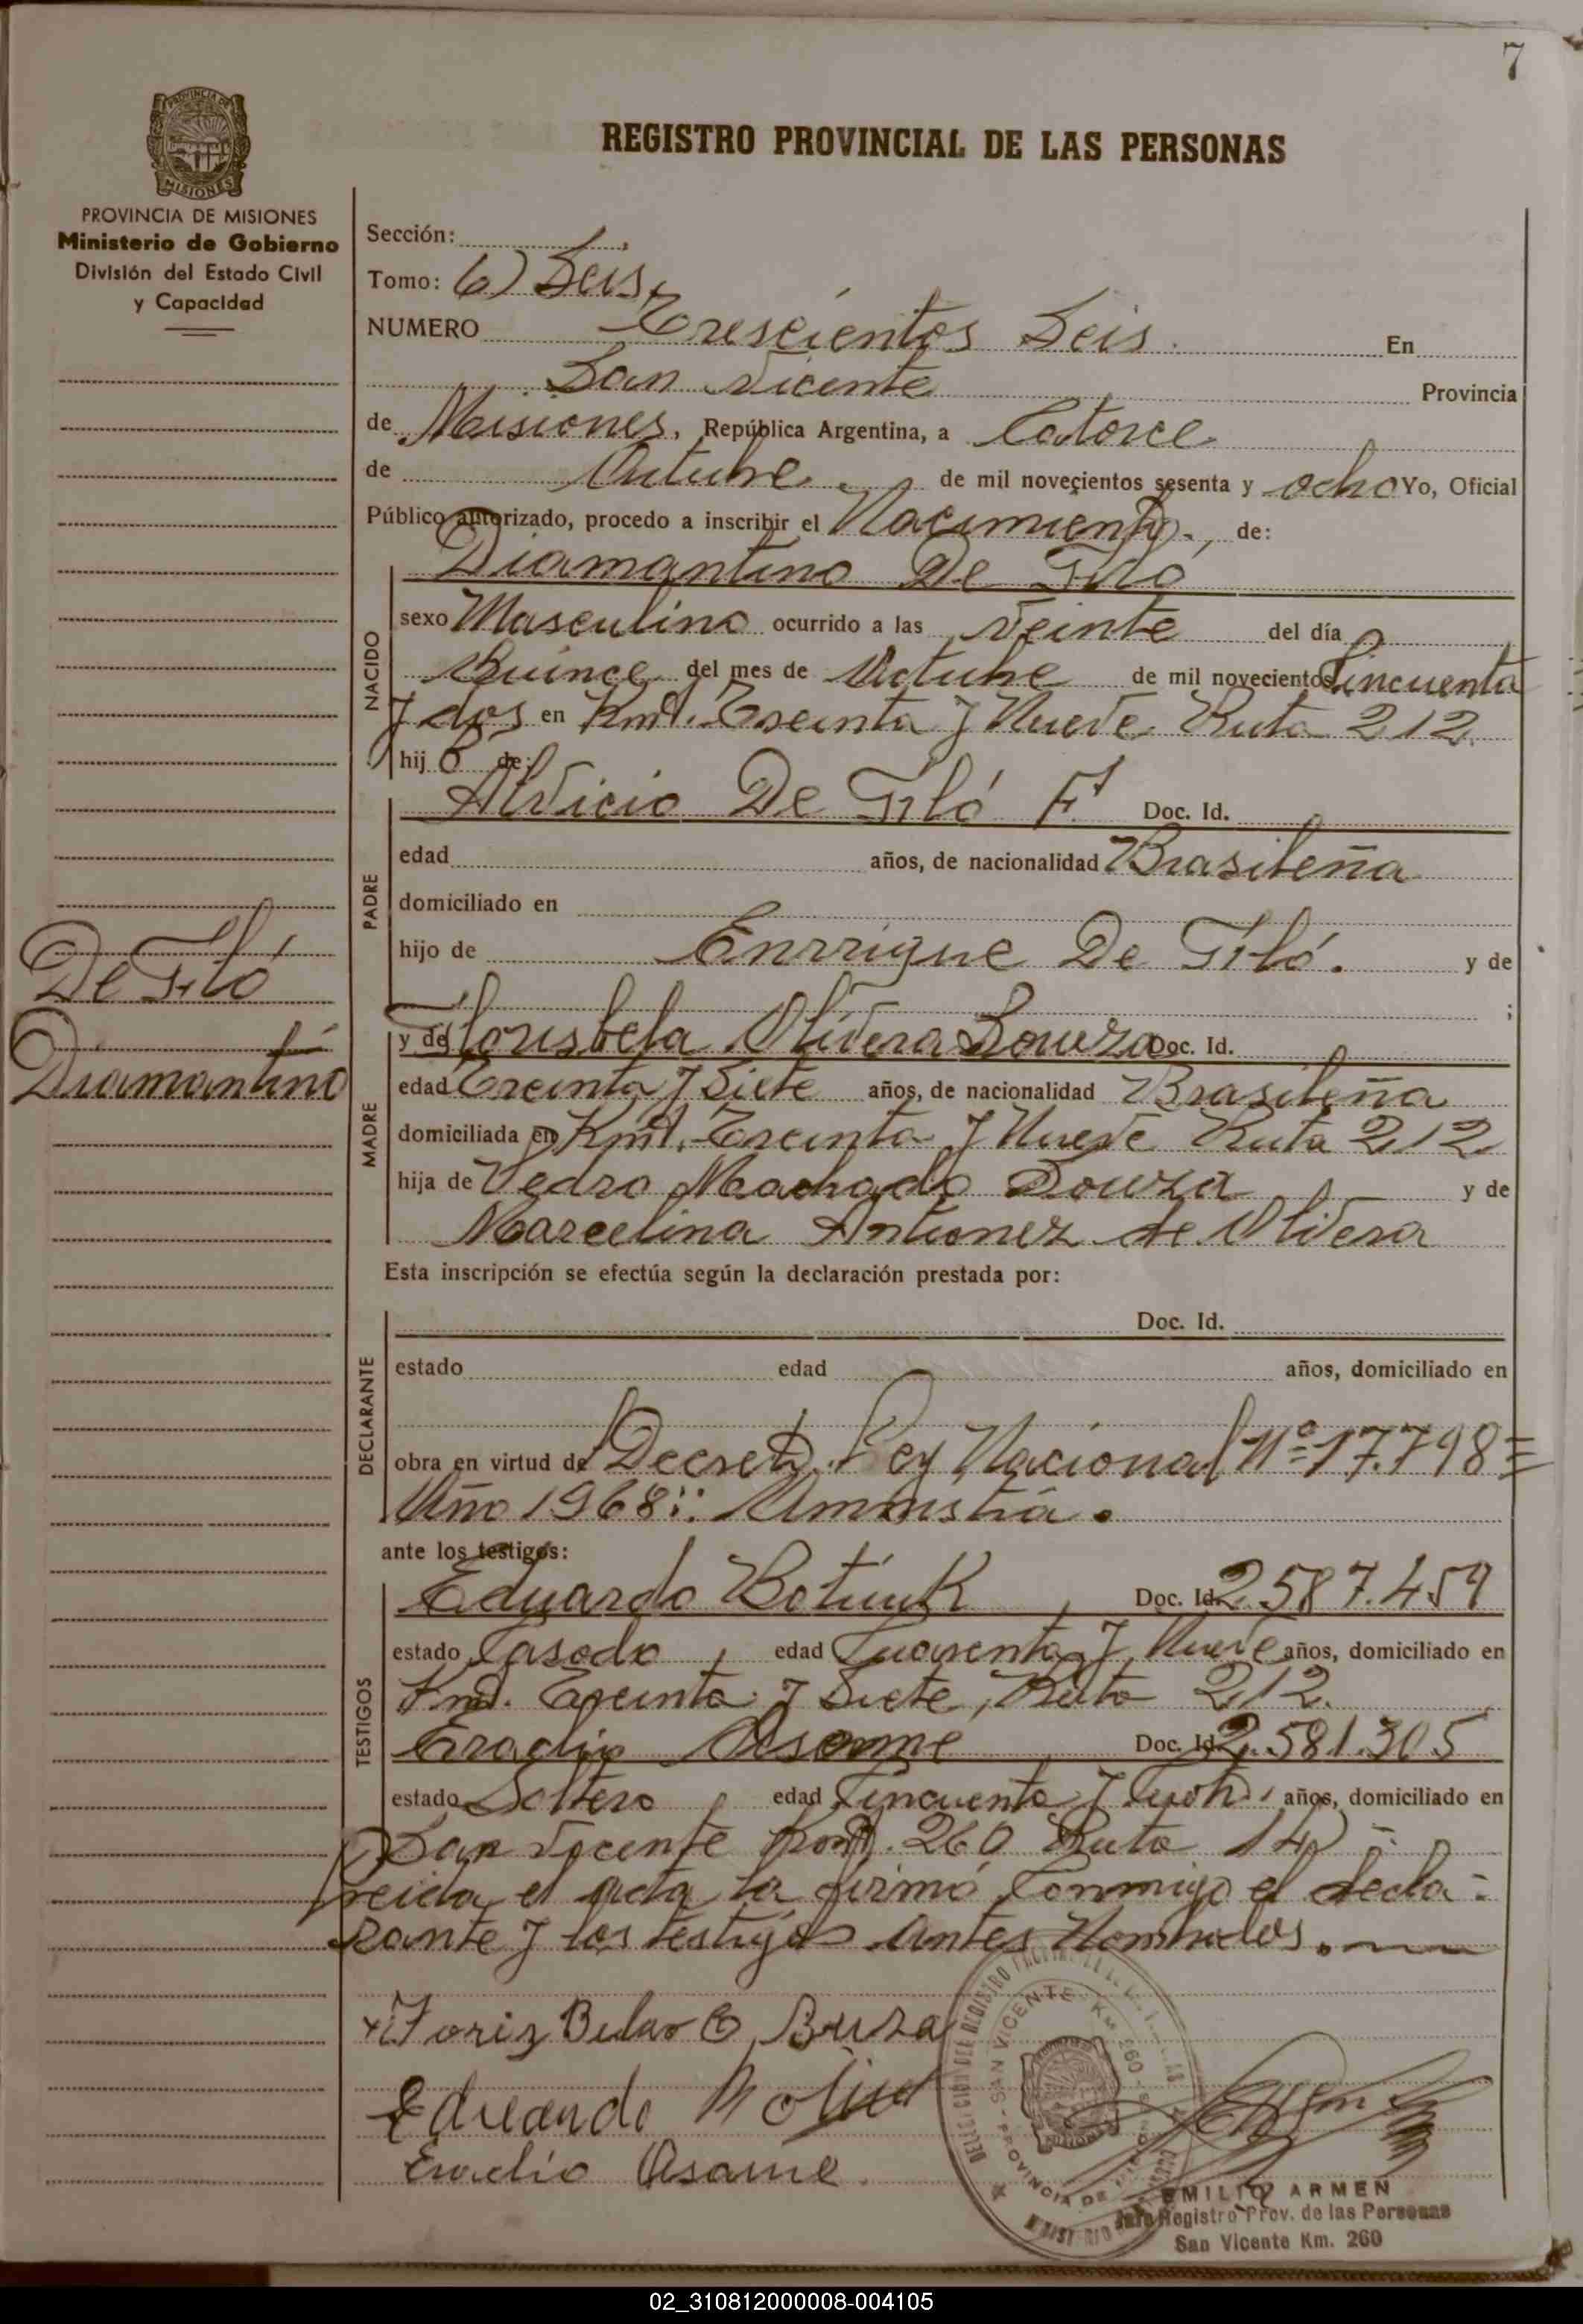 7
REGISTRO PROVINCIAL DE LAS PERSONAS
PROVINCIA DE MISIONES
Ministerio de Gobierno
División del Estado Civil
y Capacidad
Sección:
Tomo: 6) Seis,
NUMERO Trescientos Seis. En
San Vicente Provincia
de Misiones, República Argentina, a Catorce
de Octubre de mil novecientos sesenta y ocho Yo, Oficial
Público autorizado, procedo a inscribir el Nacimiento, de:
Diamantino De Filó
NACIDO
sexo Masculino ocurrido a las Veinte del día
Quince del mes de Octubre de mil novecientos Cincuenta
y dos en Kmt. Treinta y Nueve Ruta 212
hij o de:
PADRE
Alvicio De Filó F. Doc. Id.
edad años, de nacionalidad Brasileña
domiciliado en
hijo de Enrrique De Filó. y de
;
De Filó
Diamantino
MADRE
y de Florisbela Olivera Souza Doc. Id.
edad Treinta y Siete años, de nacionalidad Brasileña
domiciliada en Kmt. Treinta y Nueve Ruta 212
hija de Pedro Machado Souza y de
Marcelina Antunez de Olivera
Esta inscripción se efectúa según la declaración prestada por:
DECLARANTE
Doc. Id.
estado edad años, domiciliado en
obra en virtud de Decreto Ley Nacional Nº 17.798=
Año 1968:: Amnistia.
ante los testigos:
TESTIGOS
Eduardo Botiuk Doc. Id. 2.587.459
estado Casado, edad Cuarenta y Nueve años, domiciliado en
Kmt. Treinta y Siete, Ruta 212.
Eradio Doc. Id. 2.581.305
estado Soltero, edad Cincuenta y años, domiciliado en
San Vicente Kmt. 260 Ruta 14
Leida el acta la firmó Conmigo el decla=
rante y los testigos antes Nombrados.
Eduardo
EMILIO ARMEN
Jefe Registro Prov. de las Personas
San Vicente Km. 260
02_310812000008-004105